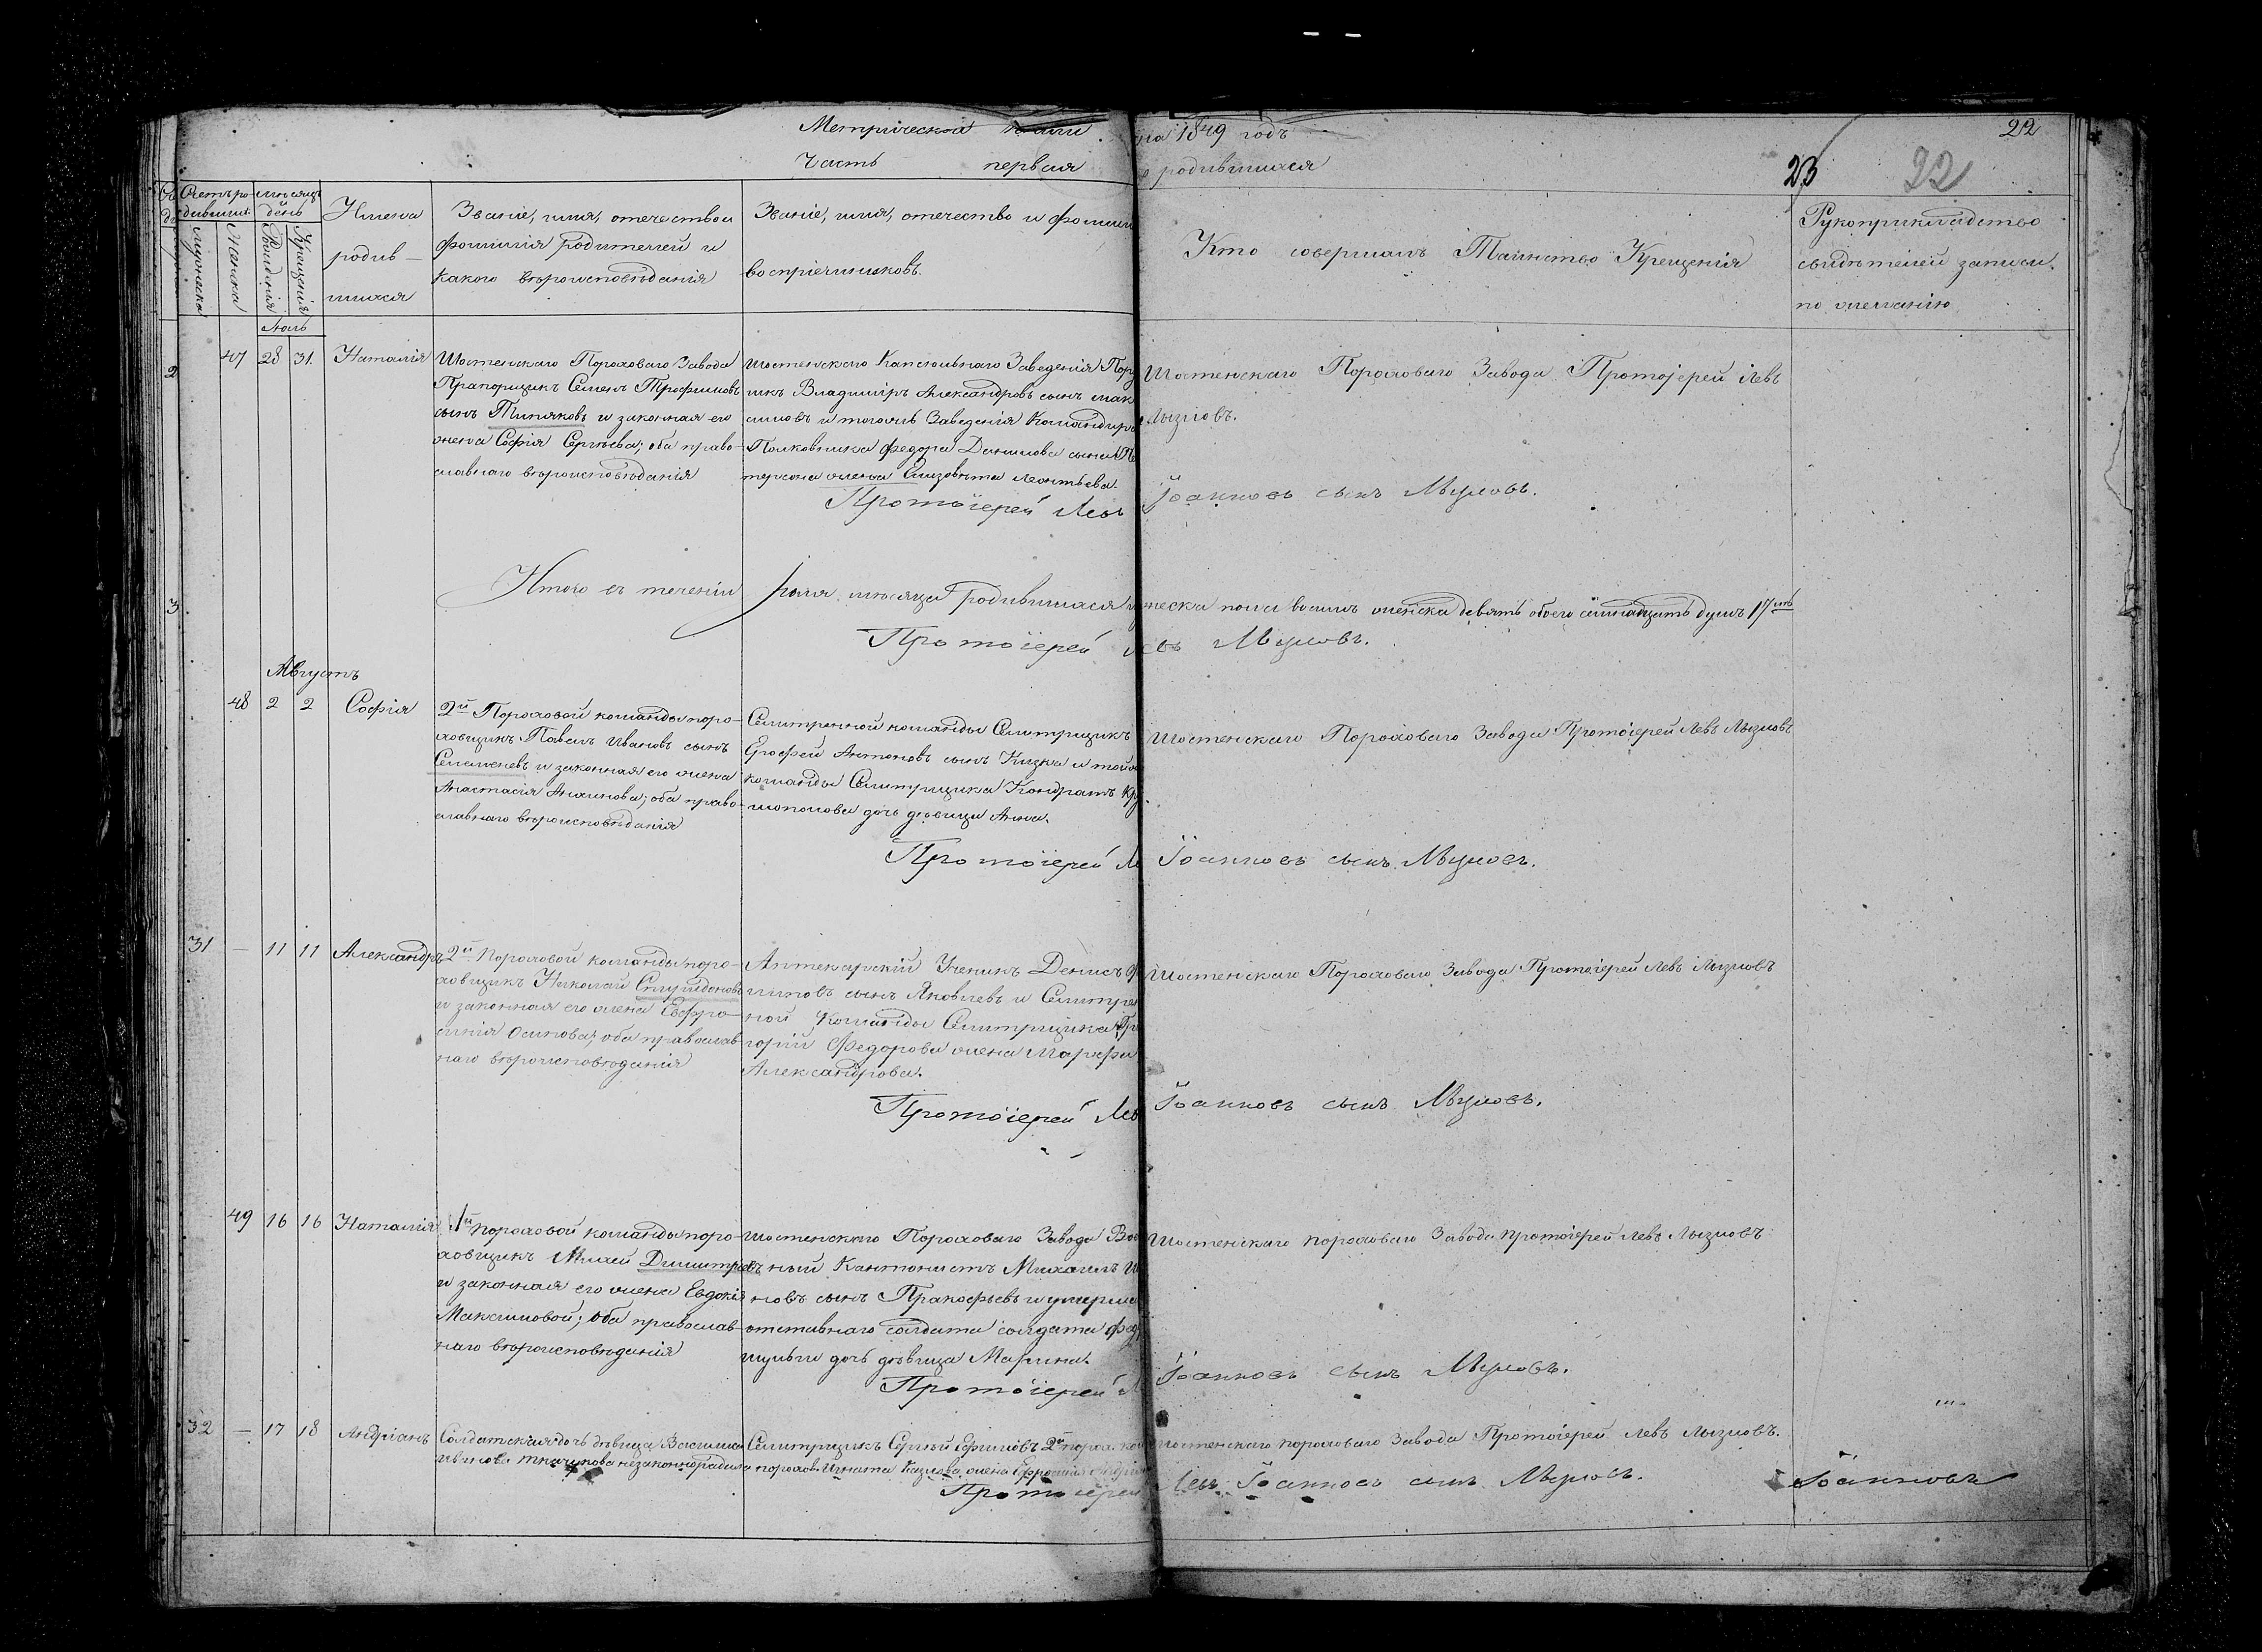 Метрической книги на 1849 годъ 22
Часть первая о родившихся 23 22
Счетъ родившихся
мѣсяцъ день
Имена родившихся
Званіе, имя, отечество и
фамилія родителей и
какого вѣроисповѣданія
Званіе, имя, отечество и фамилія
воспріемниковъ.
Кто совершалъ Таинство Крещенія
Рукоприкладство
свидѣтелей записи
по желанію
Мужеска
Женска
Рожденія
Крещенія
Іюль
47 28 31. Наталія
Шостенскаго Пороховаго Завода
Прапорщикъ Семенъ Трофимовъ
сынъ Типяковъ и законная его
жена Софія Сергѣева; оба право-
славнаго вѣроисповѣданія
Шостенскаго Капсюльнаго Заведенія Пору
икъ Владиміръ Александровъ сынъ Мак
симовъ и тогожъ Заведенія Командира
Полковника Федора Данилова сына Пе
терсона жена Елизовета Леонтьева.
Шостенскаго Пороховаго Завода Протоіерей Левъ
Лызловъ.
Протоіерей Левъ Іоанновъ сынъ Лызловъ.
Итого въ теченіи Іюля мѣсяца родившихся мужеска пола восемь женска девять обоего семнадцать душъ 17ть
Протоіерей Левъ Лызловъ.
Августъ
48 2 2 Софія
2й Пороховой команды поро-
ховщикъ Павелъ Ивановъ сынъ
и законная его жена
Анастасія; оба право-
славнаго вѣроисповѣданія
Селитренной команды Селитрщикъ
Ерофей Антоновъ сынъ Кизка и той же
команды Селитрщика Кондрата
дочь дѣвица Анна.
Шостенскаго Пороховаго Завода Протоіерей Левъ Лызловъ
Протоіерей Левъ Іоанновъ сынъ Лызловъ.
31 — 11 11 Александръ
2й Пороховой команды поро-
ховщикъ Николай Спиридоновъ
и законная его жена Евфро-
синія Осипова; оба православ-
наго вѣроисповѣданія
Аптекарскій Ученикъ Денисъ Ф
сынъ Яковлевъ и Селитрен
ной Команды Селитрщика Гри
горій Федорова жена Марфа
Александрова.
Шостенскаго Пороховаго Завода Протоіерей Левъ Лызловъ
Протоіерей Левъ Іоанновъ сынъ Лызловъ.
49 16 16 Наталія
1й пороховой команды поро-
ховщикъ Димитріевъ
и законная его жена Евдокія
Максимовой; оба православ-
наго вѣроисповѣданія
Шостенскаго Пороховаго Завода Воен
ный Кантонистъ Михаилъ И
новъ сынъ Пракофьевъ и умерша
отставнаго солдата солдата Фед
дочь дѣвица Марина.
Шостенскаго пороховаго Завода протоіерей Левъ Лызловъ
Протоіерей Левъ Іоанновъ сынъ Лызловъ.
32 — 17 18 Андріанъ
Солдатская дочь дѣвица Василиса
Ткачукова незаконнорадила
Селитрщикъ Сергѣй Ефимовъ 2й порох. ком
порохов. Игната Казлова жена Ефросинія
Шостенскаго пороховаго Завода Протоіерей Левъ Лызловъ.
Протоіерей Левъ Іоанновъ сынъ Лызловъ. Іоанновъ